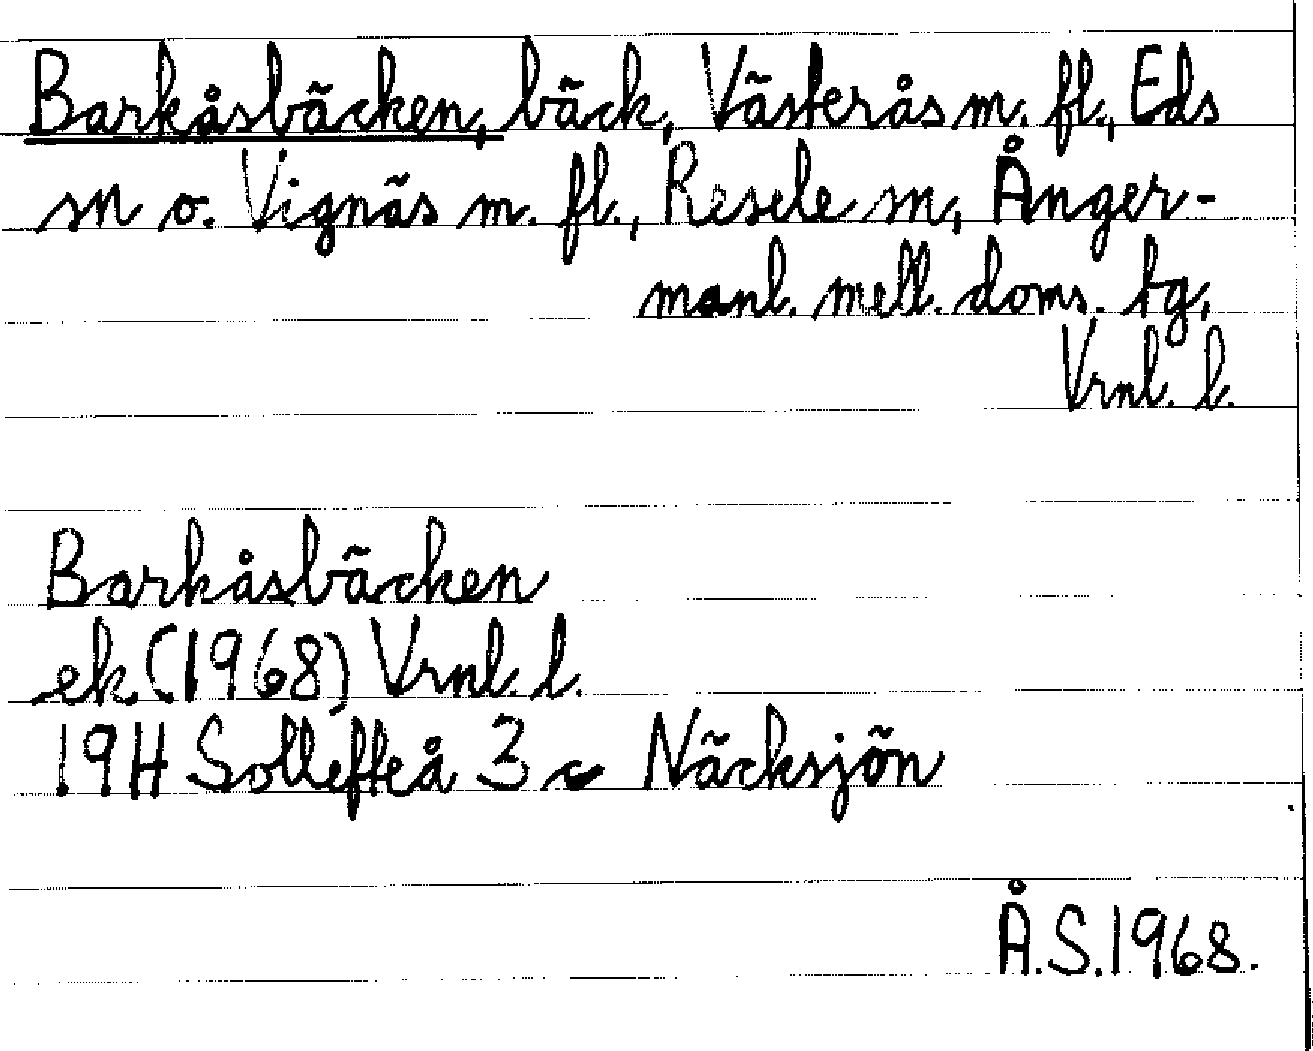 Barkåsbäcken, bäck, Västerås m. fl., Eds
sn o. Vignäs m. fl., Resele sn, Ånger-
manl. mell. doms. tg,
Vrnl. l.
Barkåsbäcken
ek. (1968) Vrnl. l.
19H Sollefteå 3 c Näcksjön
Å.S. 1968.